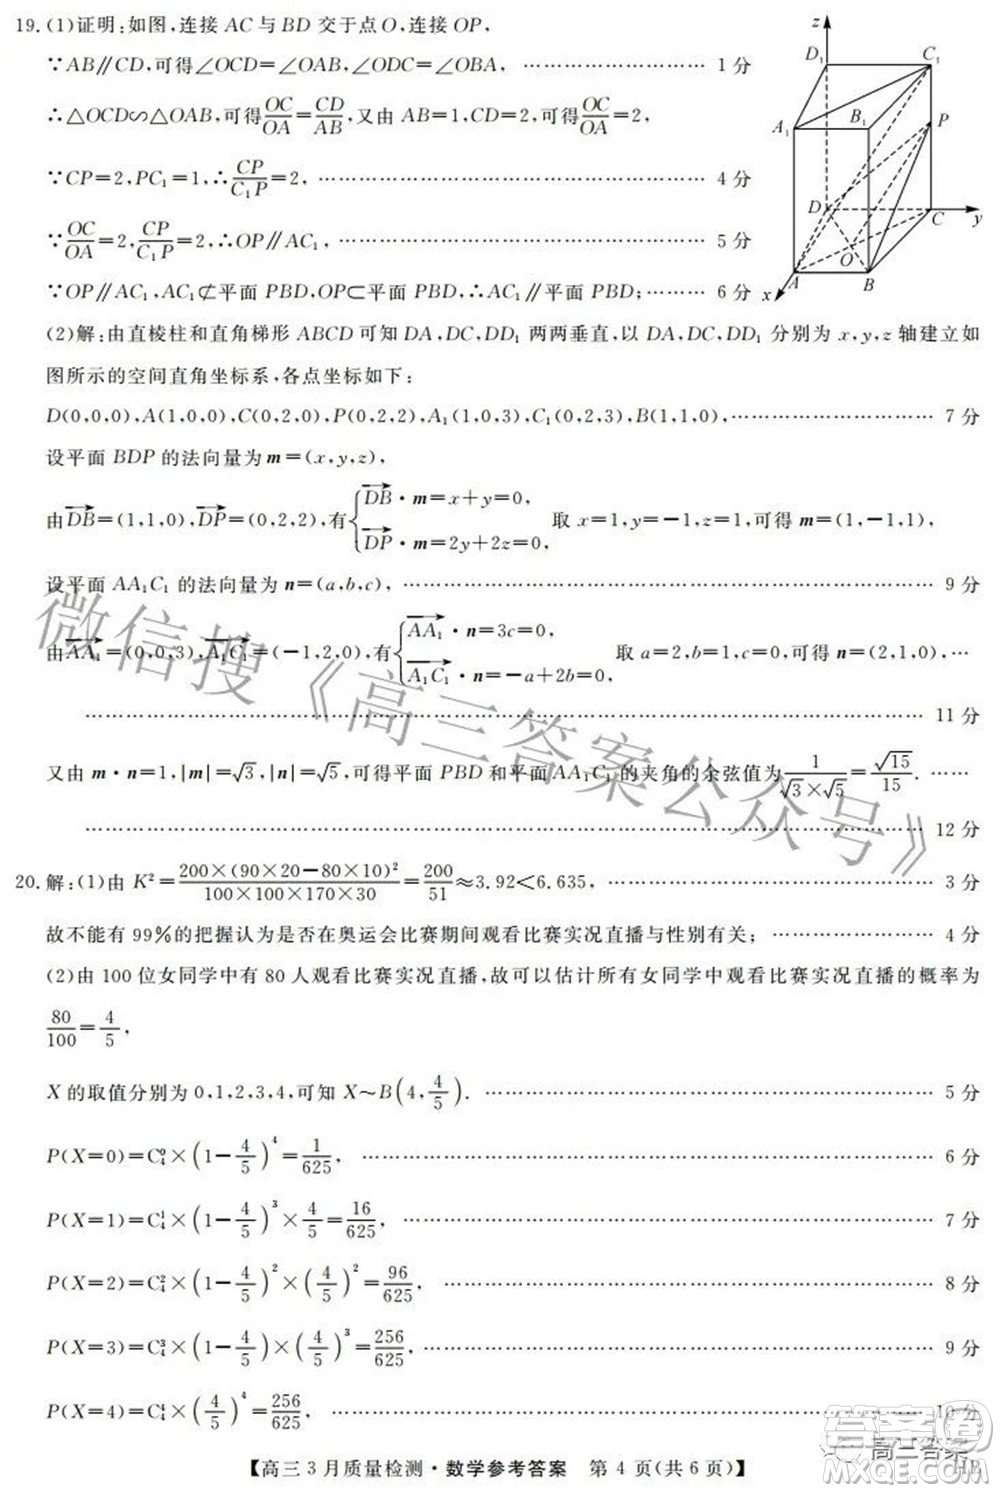 19.(1)证明:如图,连接 AC 与 BD 交于点 O,连接 OP,
∵AB∥CD,可得∠OCD=∠OAB,∠ODC=∠OBA, ………………………… 1 分
∴△OCD∽△OAB,可得OC/OA=CD/AB,又由 AB=1,CD=2,可得OC/OA=2,
∵CP=2,PC₁=1,∴CP/C₁P=2, ………………………… 4 分
∵OC/OA=2,CP/C₁P=2,∴OP∥AC₁, ………………………… 5 分
∵OP∥AC₁,AC₁⊄平面 PBD,OP⊂平面 PBD,∴AC₁∥平面 PBD; ……… 6 分
z
D₁
C₁
A₁
B₁
P
D
C
y
O
A
B
x
(2)解:由直棱柱和直角梯形 ABCD 可知 DA,DC,DD₁ 两两垂直,以 DA,DC,DD₁ 分别为 x,y,z 轴建立如
图所示的空间直角坐标系,各点坐标如下:
D(0,0,0),A(1,0,0),C(0,2,0),P(0,2,2),A₁(1,0,3),C₁(0,2,3),B(1,1,0), ………………………… 7 分
设平面 BDP 的法向量为 m=(x,y,z),
由DB→=(1,1,0),DP→=(0,2,2),有{DB→·m=x+y=0, DP→·m=2y+2z=0, 取 x=1,y=-1,z=1,可得 m=(1,-1,1),
设平面 AA₁C₁ 的法向量为 n=(a,b,c), ………………………… 9 分
由AA₁→=(0,0,3),A₁C₁→=(-1,2,0),有{AA₁→·n=3c=0, A₁C₁→·n=-a+2b=0, 取 a=2,b=1,c=0,可得 n=(2,1,0), …
………………………… 11 分
又由 m·n=1,|m|=√3,|n|=√5,可得平面 PBD 和平面 AA₁C₁ 的夹角的余弦值为1/(√3×√5)=√15/15. ……
………………………… 12 分
20.解:(1)由 K²=200×(90×20-80×10)²/(100×100×170×30)=200/51≈3.92<6.635, ………………………… 3 分
故不能有 99%的把握认为是否在奥运会比赛期间观看比赛实况直播与性别有关; ………………… 4 分
(2)由 100 位女同学中有 80 人观看比赛实况直播,故可以估计所有女同学中观看比赛实况直播的概率为
80/100=4/5,
X 的取值分别为 0,1,2,3,4,可知 X~B(4,4/5). ………………………… 5 分
P(X=0)=C₄⁰×(1-4/5)⁴=1/625, ………………………… 6 分
P(X=1)=C₄¹×(1-4/5)³×4/5=16/625, ………………………… 7 分
P(X=2)=C₄²×(1-4/5)²×(4/5)²=96/625, ………………………… 8 分
P(X=3)=C₄³×(1-4/5)×(4/5)³=256/625, ………………………… 9 分
P(X=4)=C₄⁴×(4/5)⁴=256/625, ………………………… 10 分
【高三 3 月质量检测·数学参考答案 第 4 页(共 6 页)】
HB
微信搜《高三答案公众号》
高三答案
答案圈